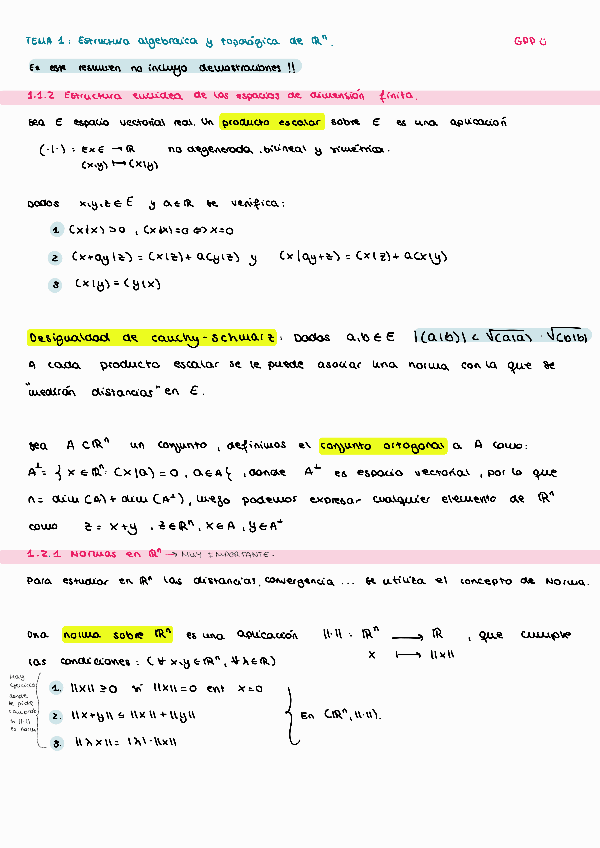 TEMA 1: Estructura algebraica y topológica de ℝⁿ. GDD ü
En este resumen no incluyo demostraciones !!
1.1.2 Estructura euclídea de los espacios de dimensión finita.
Sea E espacio vectorial real. Un producto escalar sobre E es una aplicación
(·|·) : E×E → ℝ no degenerada, bilineal y simétrica.
(x,y) ↦ (x|y)
Dados x,y,z ∈ E y a ∈ ℝ se verifica:
1 (x|x) > 0 , (x|x)=0 ⇔ x=0
2 (x+ay|z) = (x|z) + a(y|z) y (x|ay+z) = (x|z) + a(x|y)
3 (x|y) = (y|x)
Desigualdad de Cauchy-Schwarz: Dados a,b ∈ E |(a|b)| ≤ √(a|a) · √(b|b)
A cada producto escalar se le puede asociar una norma con la que se
"medirán distancias" en E.
Sea A ⊂ ℝⁿ un conjunto, definimos el conjunto ortogonal a A como:
A^⊥ = { x ∈ ℝⁿ : (x|a) = 0 , a ∈ A } , donde A^⊥ es espacio vectorial, por lo que
n = dim (A) + dim (A^⊥), luego podemos expresar cualquier elemento de ℝⁿ
como z = x+y , z ∈ ℝⁿ, x ∈ A , y ∈ A^⊥
1.2.1 Normas en ℝⁿ → MUY IMPORTANTE.
Para estudiar en ℝⁿ las distancias, convergencia ... se utiliza el concepto de Norma.
Una norma sobre ℝⁿ es una aplicación ||·|| : ℝⁿ → ℝ , que cumple
x ↦ ||x||
las condiciones: (∀ x,y ∈ ℝⁿ, ∀ λ ∈ ℝ)
Hay
ejercicios
donde
te pide
si ||·||
es norma
1. ||x|| ≥ 0 si ||x|| = 0 ent x=0
2. ||x+y|| ≤ ||x|| + ||y||
3. ||λx|| = |λ|·||x||
En (ℝⁿ, ||·||).